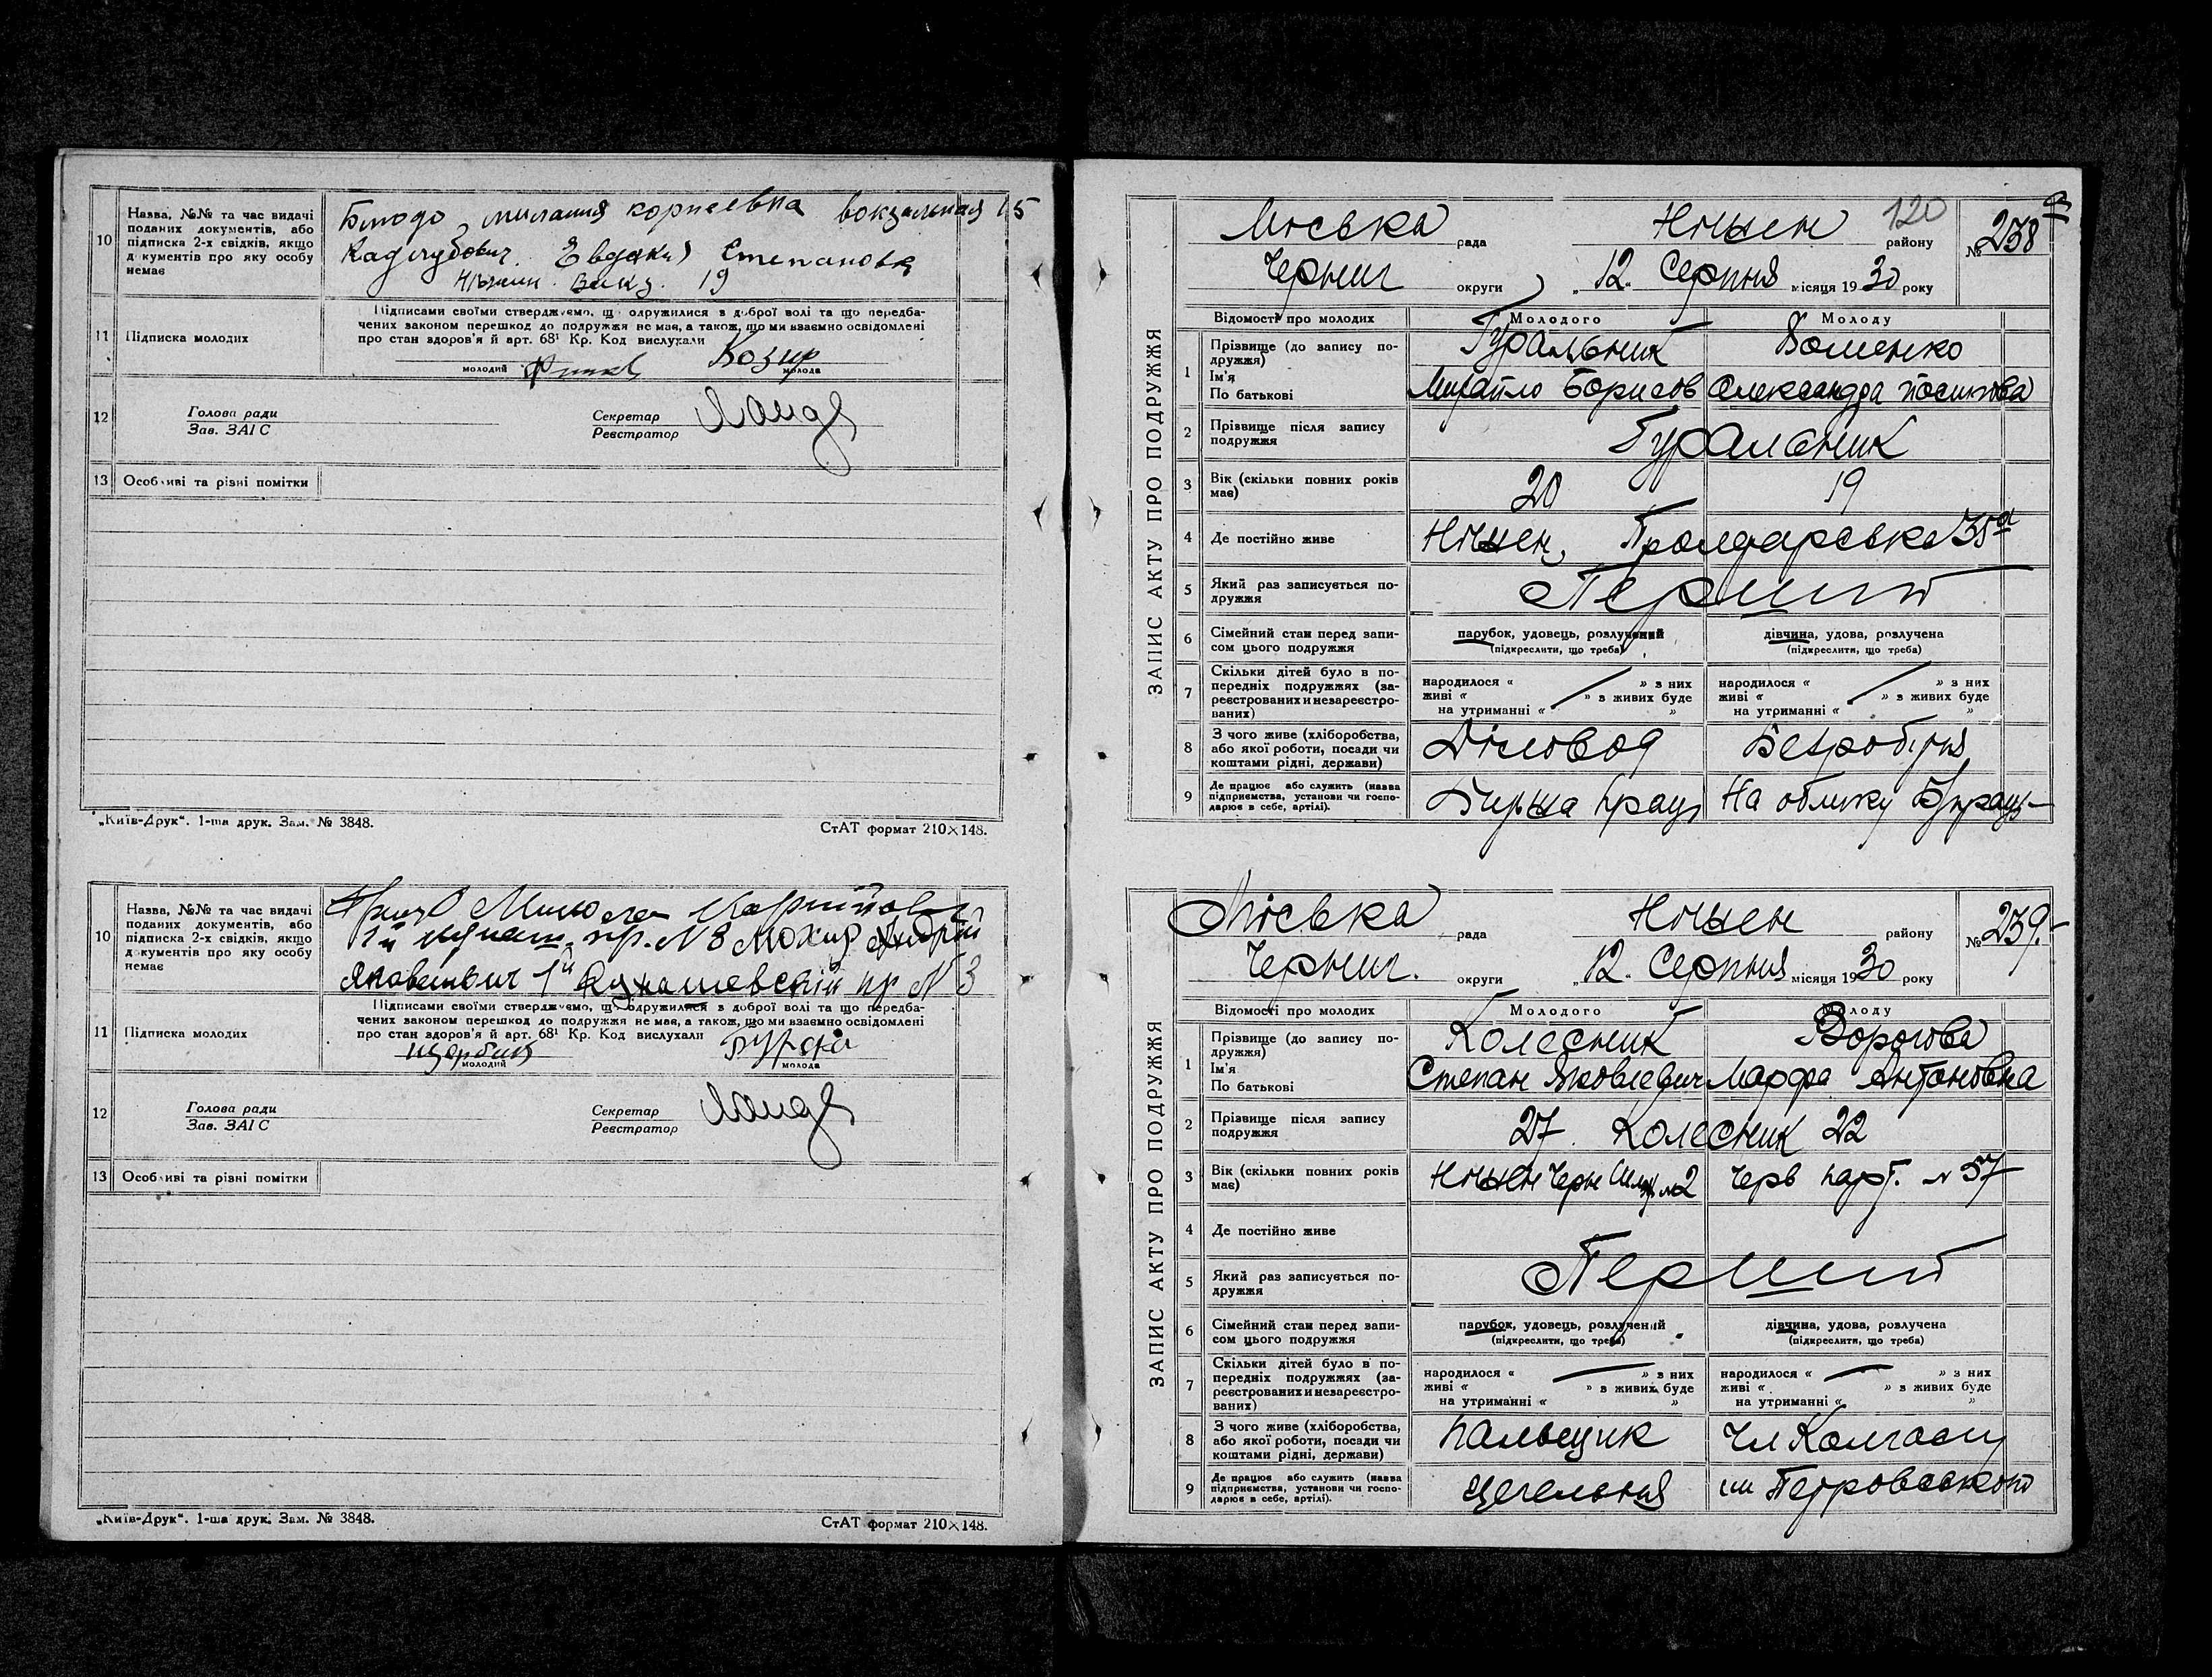 10
Назва, №№ та час видачі
поданих документів, або
підписка 2-х свідків, якщо
документів про яку особу
немає
корнеевна вокзальная 15
Евдокия Степановна
Нѣжин. Вокз. 19
11
Підписка молодих
Підписами своїми стверджуємо, що одружилися з доброї волі та що передба-
чених законом перешкод до подружжя не має, а також, що ми взаємно освідомлені
про стан здоров'я й арт. 68¹ Кр. Код вислухали
Козир
молодий
молода
12
Голова ради
Зав. ЗАГС
Секретар
Реєстратор
13
Особливі та різні помітки
„Київ-Друк“. 1-ша друк. Зам. № 3848.
СтАТ формат 210×148.
10
Назва, №№ та час видачі
поданих документів, або
підписка 2-х свідків, якщо
документів про яку особу
немає
пр. N 8 Андрій
Яковлевич 1й пр N 3
11
Підписка молодих
Підписами своїми стверджуємо, що одружилися з доброї волі та що передба-
чених законом перешкод до подружжя не має, а також, що ми взаємно освідомлені
про стан здоров'я й арт. 68¹ Кр. Код вислухали
молодий
молода
12
Голова ради
Зав. ЗАГС
Секретар
Реєстратор
13
Особливі та різні помітки
„Київ-Друк“. 1-ша друк. Зам. № 3848.
СтАТ формат 210×148.
120
ЗАПИС АКТУ ПРО ПОДРУЖЖЯ
Міська рада Ніжен району № 238а
Черниг округи „12. Серпня місяця 1930 року
Відомості про молодих
Молодого
Молоду
1
Прізвище (до запису по-
дружжя)
Ім'я
По батькові
Гуральник
Михайло Борисов
Олександра
2
Прізвище після запису
подружжя
Гуральник
3
Вік (скільки повних років
має)
20
19
4
Де постійно живе
Ніжен,
5
Який раз записується по-
дружжя
Перший
6
Сімейний стан перед запи-
сом цього подружжя
парубок, удовець, розлучений
(підкреслити, що треба)
дівчина, удова, розлучена
(підкреслити, що треба)
7
Скільки дітей було в по-
передніх подружжях (за-
реєстрованих и незареєстро-
ваних)
народилося « » з них
живі « » з живих буде
на утриманні « »
народилося « » з них
живі « » з живих буде
на утриманні « »
8
З чого живе (хліборобства,
або якої роботи, посади чи
коштами рідні, держави)
Діловод
Безробітня
9
Де працює або служить (назва
підприємства, установи чи госпо-
дарює в себе, артілі).
Биржа праці
На обліку Б/праці
ЗАПИС АКТУ ПРО ПОДРУЖЖЯ
Міська рада Ніжен району № 239.
Черниг. округи „12. Серпня місяця 1930 року
Відомості про молодих
Молодого
Молоду
1
Прізвище (до запису по-
дружжя)
Ім'я
По батькові
Колесник
Степан Яковлевич
Марфа Антоновна
2
Прізвище після запису
подружжя
27. Колесник 22
3
Вік (скільки повних років
має)
Ніжен Черн №2
Черв парт. № 57
4
Де постійно живе
5
Який раз записується по-
дружжя
Перший
6
Сімейний стан перед запи-
сом цього подружжя
парубок, удовець, розлучений
(підкреслити, що треба)
дівчина, удова, розлучена
(підкреслити, що треба)
7
Скільки дітей було в по-
передніх подружжях (за-
реєстрованих и незареєстро-
ваних)
народилося « » з них
живі « » з живих буде
на утриманні « »
народилося « » з них
живі « » з живих буде
на утриманні « »
8
З чого живе (хліборобства,
або якої роботи, посади чи
коштами рідні, держави)
Пальщик
Чл Колгоспу
9
Де працює або служить (назва
підприємства, установи чи госпо-
дарює в себе, артілі).
Цегельня
ім Петровського